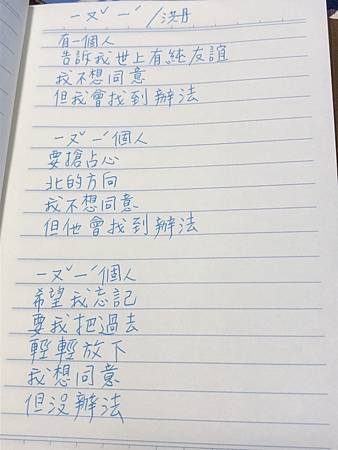 ㄧㄡˇ ㄧˊ / 洪丹
有一個人
告訴我世上有純友誼
我不想同意
但我會找到辦法
ㄧㄡˇ ㄧˊ個人
要搶占心
北的方向
我不想同意
但他會找到辦法
ㄧㄡˇ ㄧˊ個人
希望我忘記
要我把過去
輕輕放下
我想同意
但沒辦法